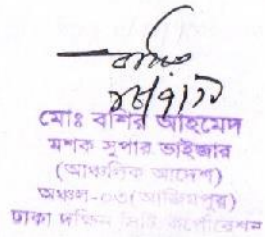 বশির
১৮/৭/১১
মোঃ বশির আহমেদ
মশক সুপার ভাইজার
(আঞ্চলিক আদেশ)
অঞ্চল-০৩(আজিমপুর)
ঢাকা দক্ষিন সিটি কর্পোরেশন